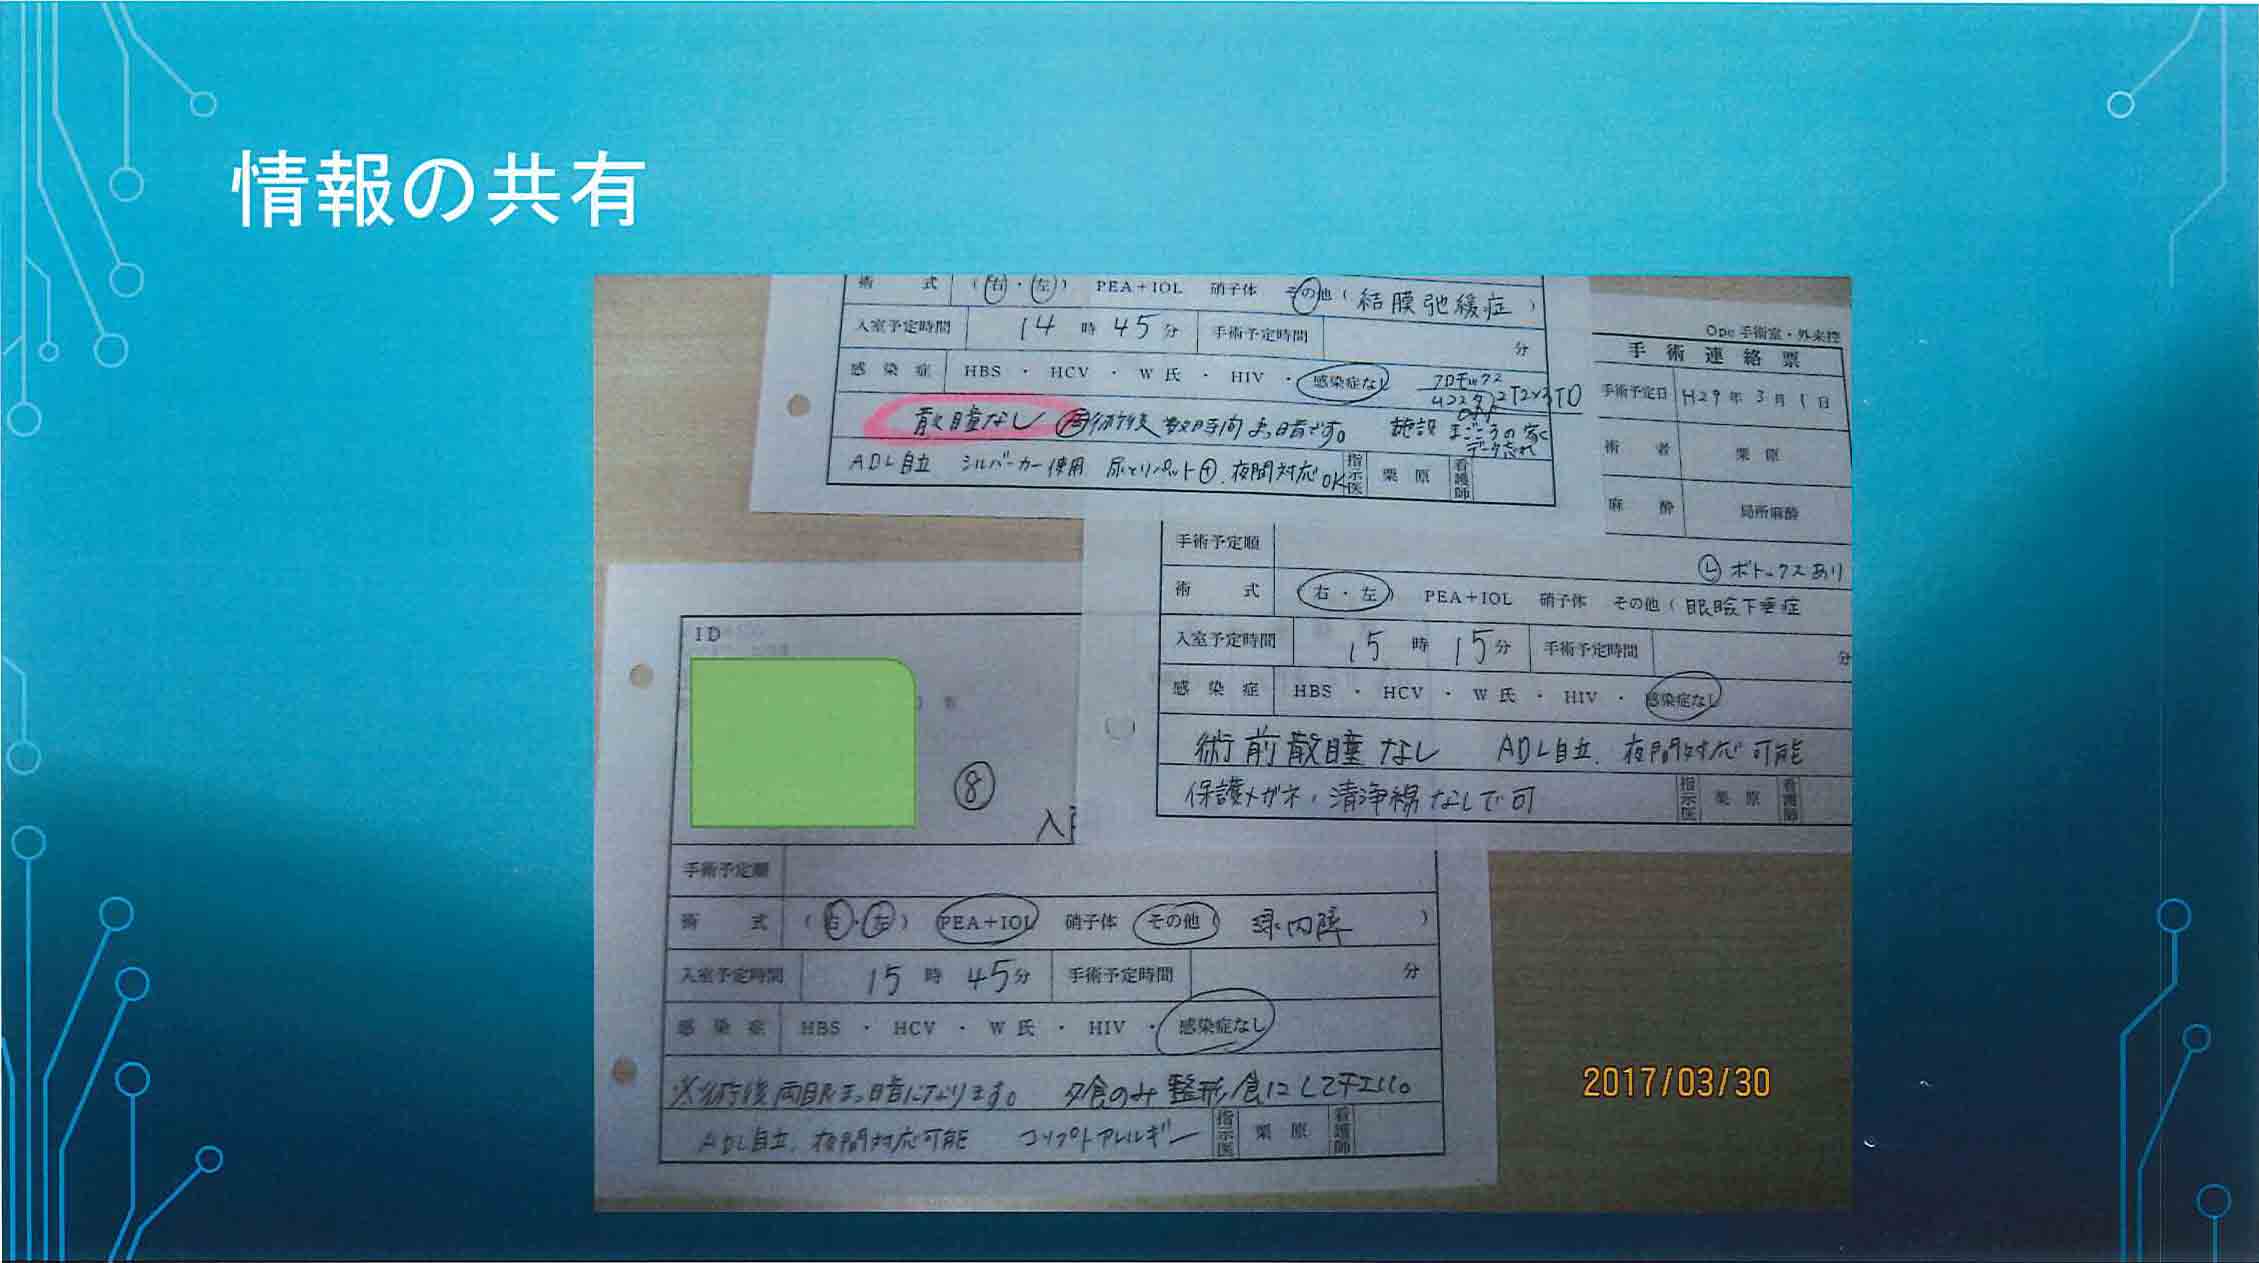 情報の共有
術 式 (右・左) PEA+IOL 硝子体 その他 ( 結膜弛緩症 )
入室予定時間 14 時 45 分 手術予定時間 分
感 染 症 HBS ・ HCV ・ W氏 ・ HIV ・ 感染症なし
散瞳なし 術後数時間まっ暗です。 施設
ADL自立 シルバーカー使用 尿とりパット 夜間対応OK 指示医 栗原 看護師
Ope 手術室・外来控
手術連絡票
手術予定日 H29 年 3 月 1 日
術 者 栗原
麻 酔 局所麻酔
Ⓛ ボトックスあり
手術予定順
術 式 (右・左) PEA+IOL 硝子体 その他 ( 眼瞼下垂症
入室予定時間 15 時 15 分 手術予定時間 分
感 染 症 HBS ・ HCV ・ W氏 ・ HIV ・ 感染症なし
術前散瞳なし ADL自立、夜間対応可能
保護メガネ、清浄綿なしで可 指示医 栗原 看護師
ID
⑧
手術予定順
術 式 (右・左) PEA+IOL 硝子体 その他 ( 緑内障 )
入室予定時間 15 時 45 分 手術予定時間 分
感 染 症 HBS ・ HCV ・ W氏 ・ HIV ・ 感染症なし
※術後両眼まっ暗になります。 夕食のみ整形食にして下さい。
ADL自立、夜間対応可能 コソプトアレルギー 指示医 栗原 看護師
2017/03/30